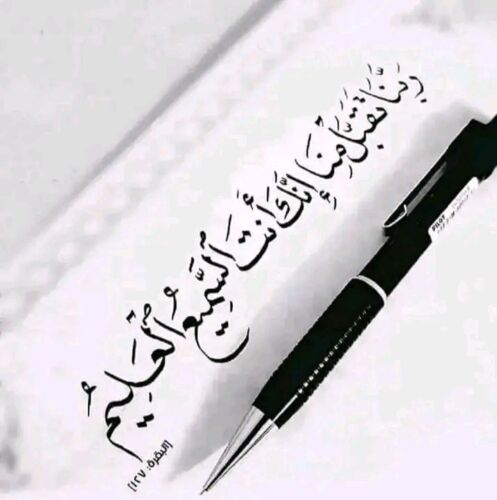 رَبَّنَا تَقَبَّلْ مِنَّا إِنَّكَ أَنتَ ٱلسَّمِيعُ ٱلْعَلِيمُ
[البقرة: ١٢٧]
PILOT